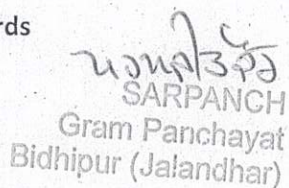 rds
SARPANCH
Gram Panchayat
Bidhipur (Jalandhar)